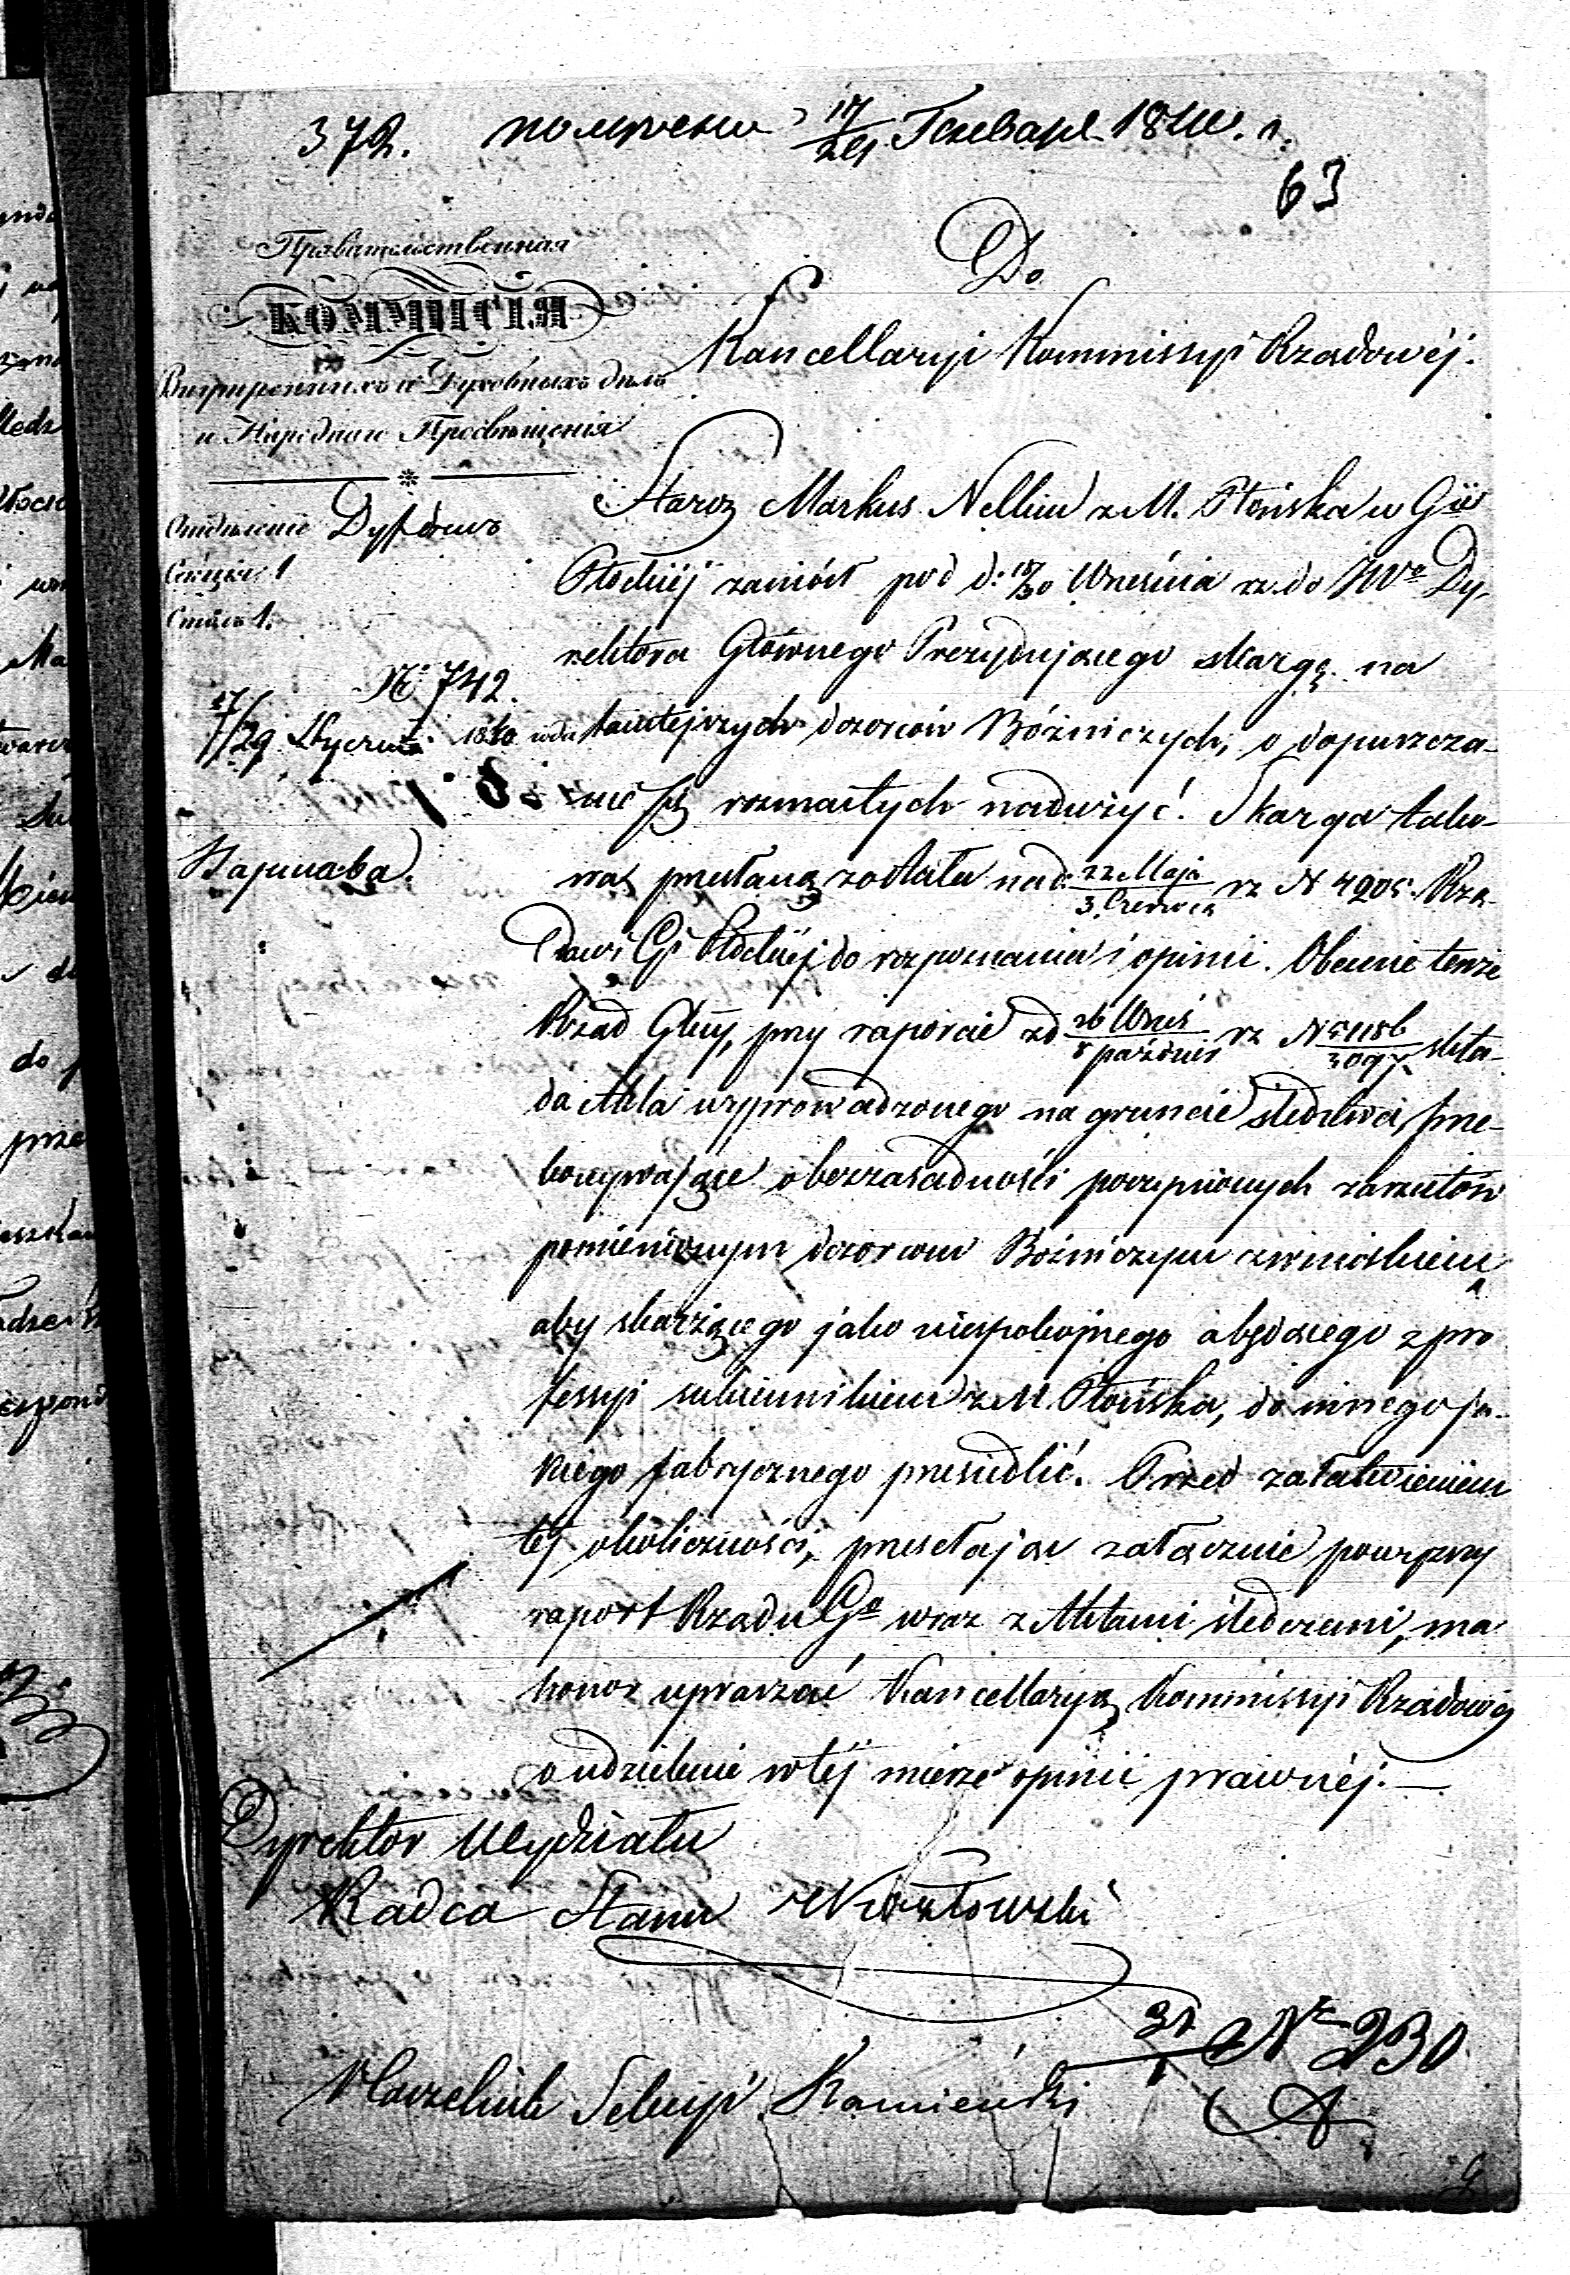 372. получено 17/29 Генваря 1840. г.
63
Правительственная
КОММИСІЯ
Внутреннихъ и Духовныхъ дѣлъ
и Народнаго Просвѣщенія
Отдѣленіе Dyftów
Секція 1
Столъ 1.
№ 742.
17/29 Stycznia 1840 года
Варшава.
Do
Kancellaryi Kommissyi Rządowéj.
Staroz Markus Nellin z M. Płońska w Gii
Płockiéj zaniósł pod d: 18/30 Września rz. do JWo Dy-
rektora Głównego Prezydującego skargę na
tamtejszych dozorców Bóżniczych, o dopuszcza-
nie się rozmaitych nadużyć. Skarga tako-
wa, przesłaną została nad 22 Maja/3 Czerwca rz N 4205. Rzą-
dowi Gi Płockiéj do rozpoznania i opinii. Obecnie tenże
Rząd Glny, przy raporcie z d 26 Wrześ/8 paździer rz N 51186/3097 skła-
da Akta wyprowadzonego na gruncie śledztwa, prze-
konywające o bezzasadności poczynionych zarzutów
pomienionym dozorcom Bóżniczym z wnioskiem,
aby skarżącego jako niespokojnego a będącego z pro
fessyi sukiennikiem z M. Płońska, do innego ja-
kiego fabrycznego przesiedlić. Przed załatwieniem
téj okoliczności, przesełając załącznie powyższy
raport Rządu Go wraz z Aktami śledczemi, ma
honor upraszać Kancellaryą Kommissyi Rządowéj
o udzielenie w téj mierze opinii prawnéj. —
Dyrektor Wydziału
Radca Stanu
Naczelnik Sekcyi Kamieński
31/1 Nr 230